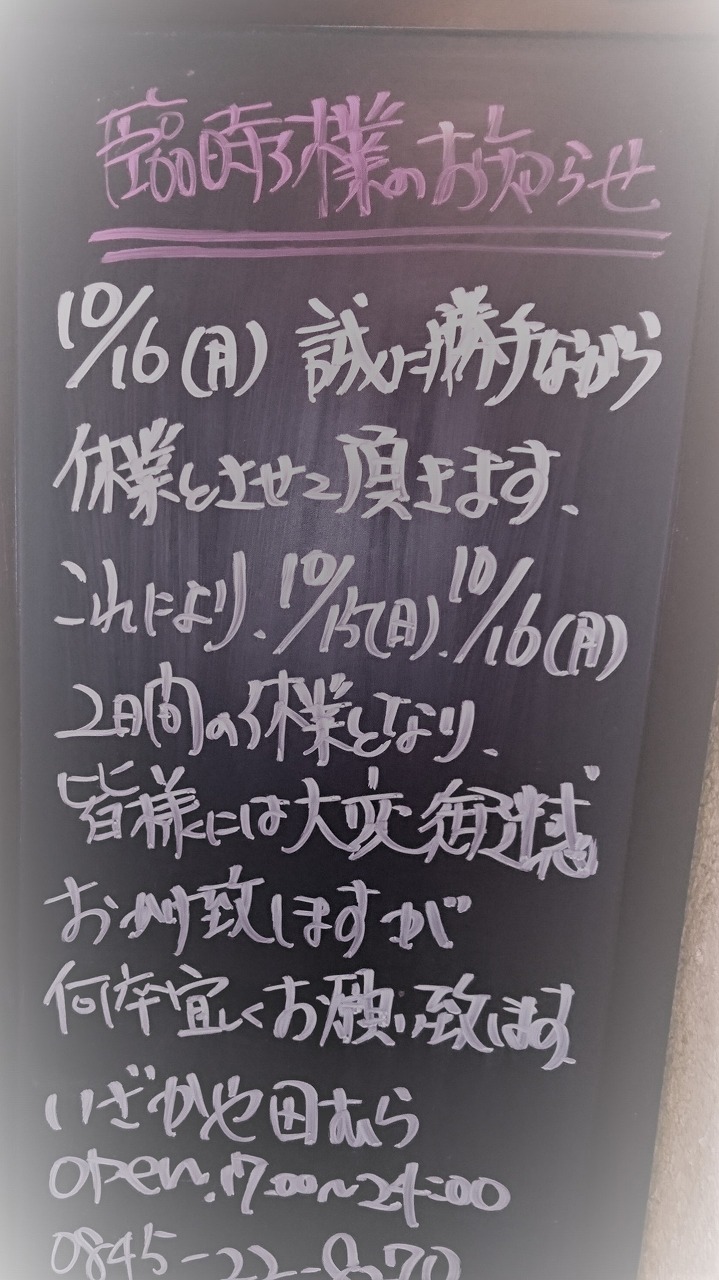 臨時休業のお知らせ
10/16(月) 誠に勝手ながら
休業とさせて頂きます、
これにより、10/15(日)、10/16(月)
2日間の休業となり、
皆様には大変御迷惑
お掛け致しますが
何卒宜しくお願い致します
いざかや田むら
open.17:00~24:00
0845-22-8270